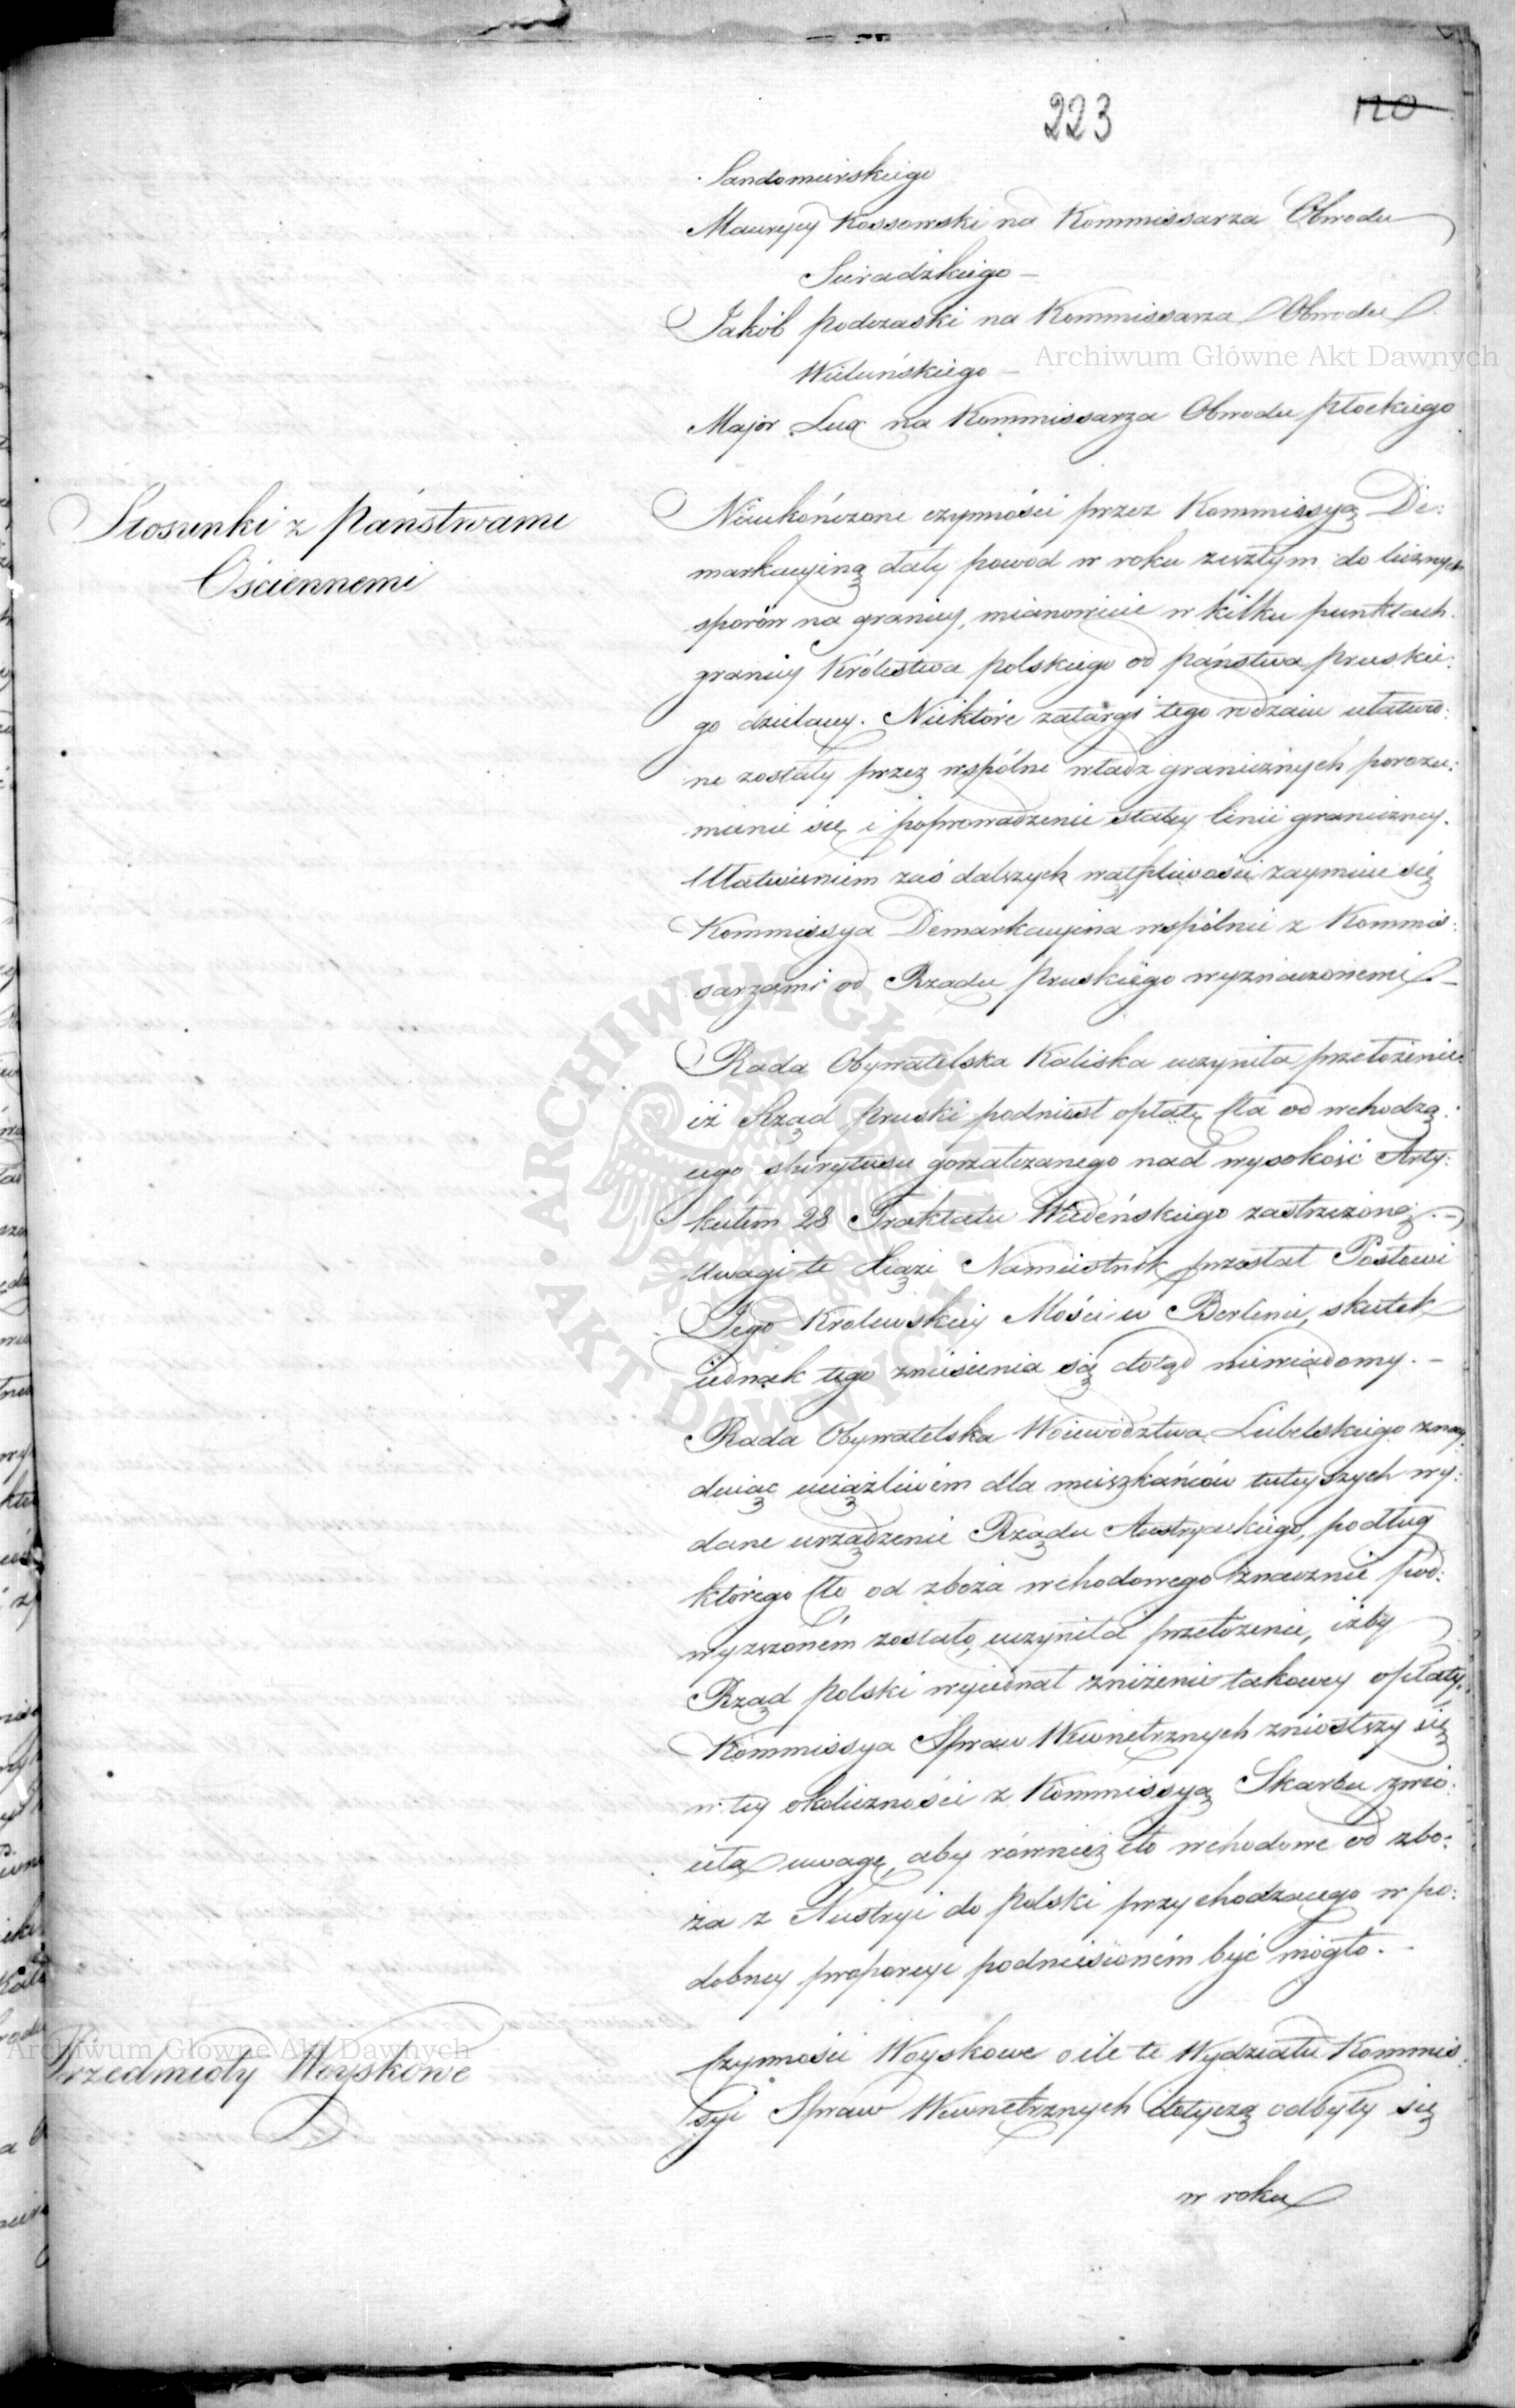 223
120
Sandomierskiego
Maurycy Kossowski na Kommissarza Obwodu
Sieradzkiego –
Jakób Podczaski na Kommissarza Obwodu
Wieluńskiego –
Major Lux na Kommissarza Obwodu Płockiego
Stosunki z Państwami
Ościennemi
Nieukończone czynności przez Kommissyą De:
markacyiną dały powod w roku zeszłym do licznych
sporów na granicy, mianowicie w kilku punktach
granicy Królestwa Polskiego od Państwa Pruskie:
go dzielącey. Niektóre zatargi tego rodzaiu ułatwio:
ne zostały przez wspólne władz granicznych porozu:
mienie się i poprowadzenie stałey linii graniczney.
Ułatwieniem zaś dalszych wątpliwości zaymuie się
Kommissya Demarkacyina wspólnie z Kommis:
sarzami od Rządu Pruskiego wyznaczonemi. –
Rada Obywatelska Kaliska uczyniła przełożenie
iż Rząd Pruski podniósł opłatę cła od wchodzą:
cego spirytusu gorzałczanego nad wysokość Arty:
kułem 28 Traktatu Wiedeńskiego zastrzeżoną. –
Uwagi te Xiąże Namiestnik przesłał Posłowi
Jego Krolewskiey Mości w Berlinie, skutek
iednak tego zniesienia się dotąd niewiadomy. –
Rada Obywatelska Woiewództwa Lubelskiego znay:
duiąc uciążliwém dla mieszkańców tuteyszych wy:
dane urządzenie Rządu Austryackiego, podług
którego cło od zboża wchodowego znacznie pod:
wyższoném zostało, uczyniła przełożenie, iżby
Rząd Polski wyiednał zniżenie takowey opłaty.
Kommissya Spraw Wewnętrznych zniosłszy się
w tey okoliczności z Kommissyą Skarbu zwró:
ciła uwagę, aby również cło wchodowe od zbo:
ża z Austryi do Polski przychodzącego w po:
dobney proporcyi podniesioném być mogło. –
Przedmioty Woyskowe
Czynności Woyskowe o ile te Wydziału Kommis:
syi Spraw Wewnętrznych dotyczą odbyły się
w roku
Archiwum Główne Akt Dawnych
Archiwum Główne Akt Dawnych
ARCHIWUM GŁÓWNE • AKT DAWNYCH •